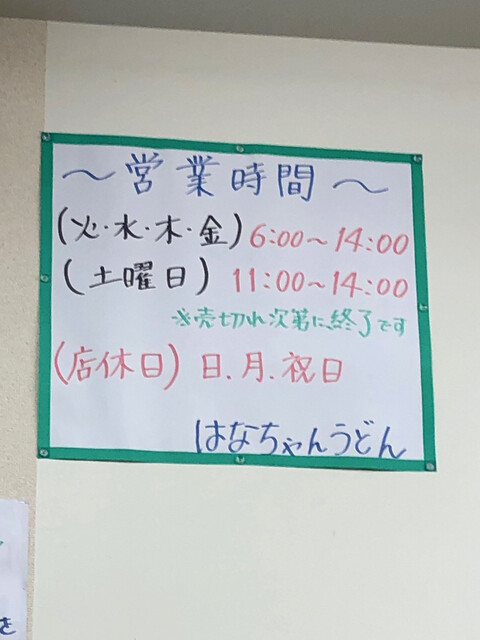 ～営業時間～
(火・水・木・金) 6:00～14:00
(土曜日) 11:00～14:00
※売切れ次第に終了です
(店休日) 日.月.祝日
はなちゃんうどん
を